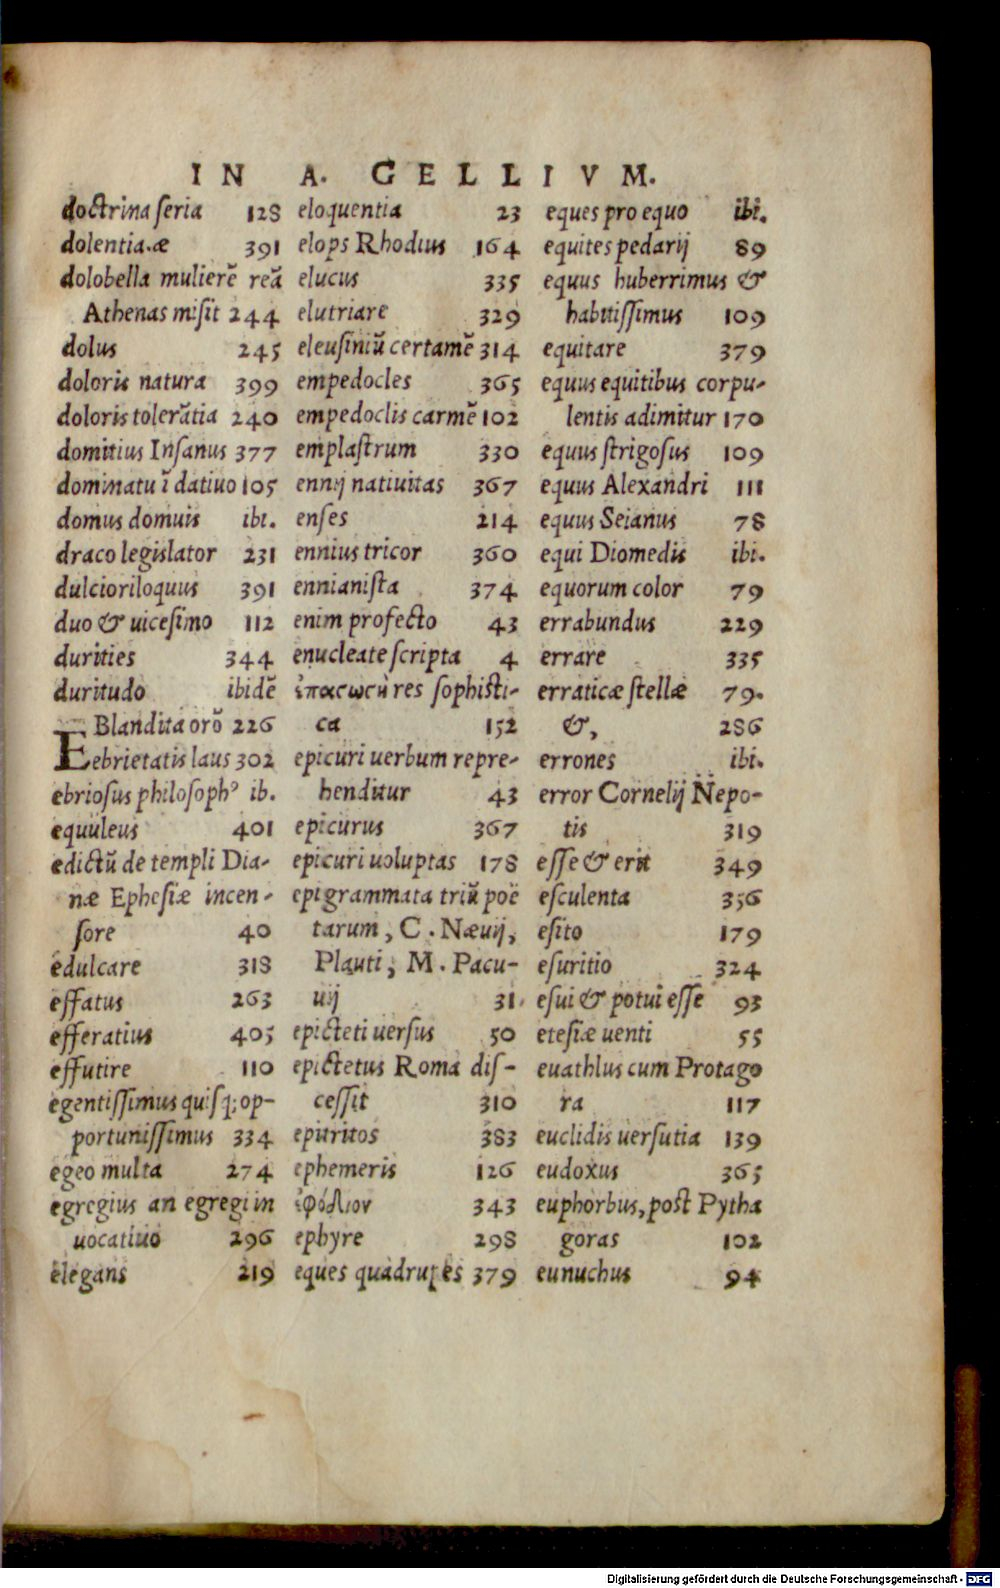 IN A. GELLIVM.
doctrina seria 128
dolentia.æ 391
dolobella mulierē reā
Athenas misit 244
dolus 245
doloris natura 399
doloris tolerātia 240
domitius Insanus 377
dominatu ī datiuo 105
domus domuis ibi.
draco legislator 231
dulcioriloquus 391
duo & uicesimo 112
durities 344
duritudo ibidē
EBlandita orō 226
ebrietatis laus 302
ebriosus philosophꝰ ib.
equuleus 401
edictū de templi Dia-
næ Ephesiæ incen-
sore 40
edulcare 318
effatus 263
efferatius 405
effutire 110
egentissimus quisq; op-
portunissimus 334
egeo multa 274
egregius an egregi in
uocatiuo 296
elegans 219
eloquentia 23
elops Rhodius 164
elucus 335
elutriare 329
eleusiniū certamē 314
empedocles 365
empedoclis carmē 102
emplastrum 330
ennij natiuitas 367
enses 214
ennius tricor 360
ennianista 374
enim profecto 43
enucleate scripta 4
res sophisti-
ca 152
epicuri uerbum repre-
henditur 43
epicurus 367
epicuri uoluptas 178
epigrammata triū poë
tarum, C. Næuij,
Plauti, M. Pacu-
uij 31
epicteti uersus 50
epictetus Roma dis-
cessit 310
epitritos 383
ephemeris 126
343
ephyre 298
eques quadrupes 379
eques pro equo ibi.
equites pedarij 89
equus huberrimus &
habitissimus 109
equitare 379
equus equitibus corpu-
lentis adimitur 170
equus strigosus 109
equus Alexandri 111
equus Seianus 78
equi Diomedis ibi.
equorum color 79
errabundus 229
errare 335
erraticæ stellæ 79.
&, 286
errones ibi.
error Cornelij Nepo-
tis 319
esse & erit 349
esculenta 356
esito 179
esuritio 324
esui & potui esse 93
etesiæ uenti 55
euathlus cum Protago
ra 117
euclidis uersutia 139
eudoxus 365
euphorbus, post Pytha
goras 102
eunuchus 94
Digitalisierung gefördert durch die Deutsche Forschungsgemeinschaft - DFG